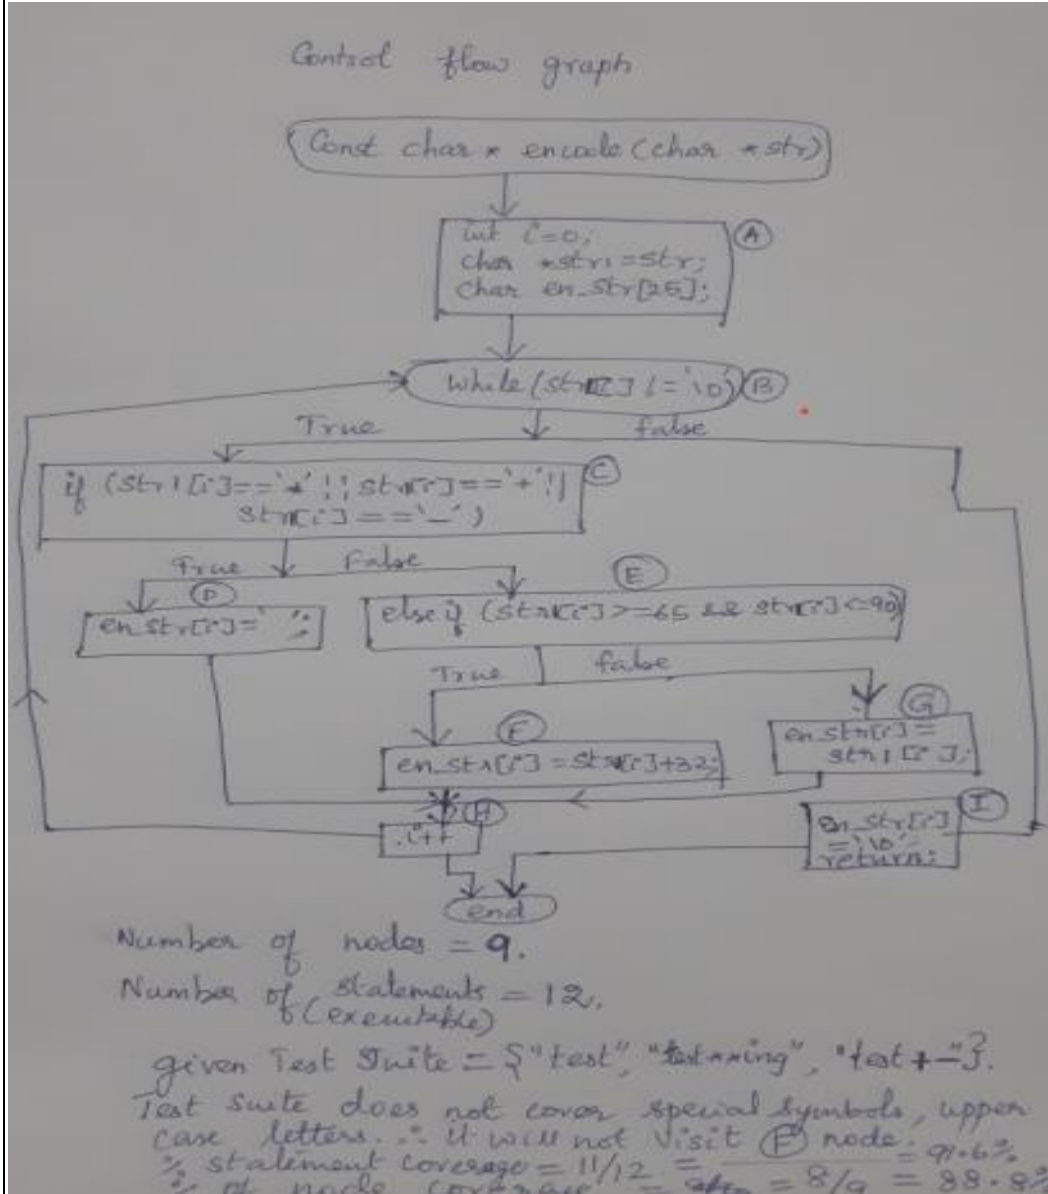 Control flow graph
Const char * encode (char *str)
int i=0;
char *str1=str;
char en_str[25];
A
while (str[i] != '\0')
B
True
false
if (str1[i]=='*' || str[i]=='+' ||
str[i]=='-')
C
True
False
D
en_str[i]=' ';
E
else if (str[i]>=65 && str[i]<=90)
True
false
F
en_str[i]=str[i]+32;
G
en_str[i]=
str1[i];
H
i++
I
en_str[i]
='\0'
return;
end
Number of nodes = 9.
Number of statements = 12.
(executable)
given Test Suite = {"test", "test**ing", "test+-"}.
Test suite does not cover special symbols, upper
case letters. ∴ it will not visit F node.
% statement coverage = 11/12 = 91.6%
% of node coverage = = 8/9 = 88.8%